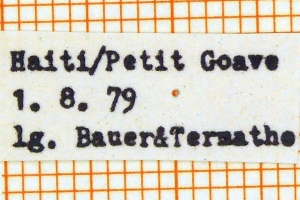 Haiti/Petit Goave
1. 8. 79
lg. Bauer&Termathe